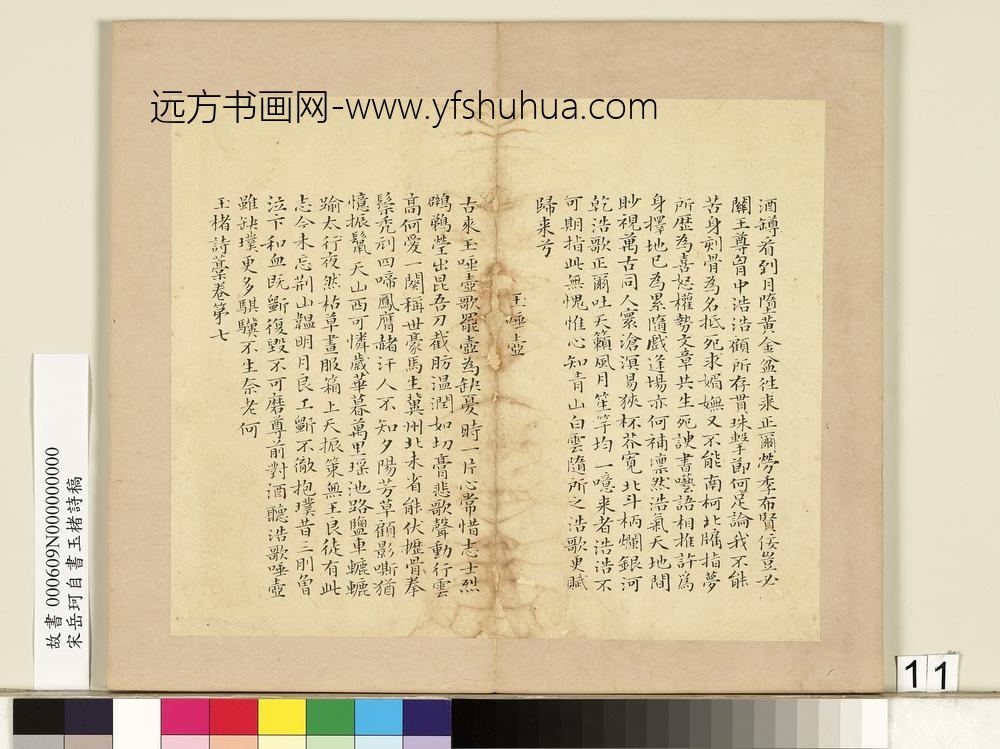 远方书画网-www.yfshuhua.com
酒罇看到月墮黃金盆徃來正爾勞季布賢佞豈必
關王尊胷中浩浩顧所存貫珠擊節何足論我不能
苦身刻骨為名抵死求媚嫵又不能南柯北牖指夢
所歷為喜怒權勢文章共生死諛書囈語相推許為
身擇地已為累隨戲逢場亦何補凛然浩氣天地間
眇視萬古同人寰滄溟易狹杯芥寬北斗柄爛銀河
乾浩歌正爾吐天籟風月笙竽均一噫来者浩浩不
可期指此無愧惟心知青山白雲隨所之浩歌更賦
歸来兮
玉唾壺
古來玉唾壺歌罷壺為缺憂時一片心常惜志士烈
鸊鵜瑩出昆吾刀截肪温潤如切膏悲歌聲動行雲
高何愛一闋稱世豪馬生冀州北未省能伏櫪骨拳
鬃禿刓四啼鳳膺赭汗人不知夕陽芳草顧影嘶猶
憶振鬣天山西可憐歲華暮萬里瑶池路鹽車轆轆
踰太行夜然枯草晝服箱上天振策無王良徒有此
志今未忘荆山韞明月良工斵不徹抱璞昔三刖魯
泣下和血既斵復毀不可磨尊前對酒聽浩歌唾壺
雖缺璞更多騏驥不生奈老何
玉楮詩藁卷第七
故書 000609N000000000
宋岳珂自書玉楮詩稿
11